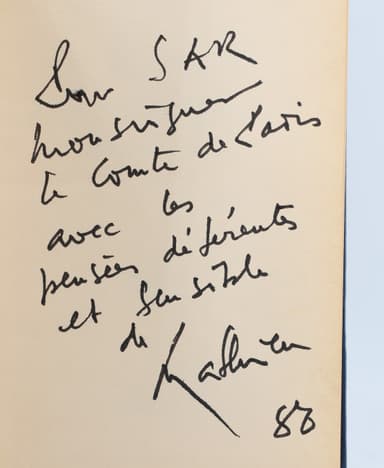 Pour SAR
Monseigneur
le Comte de Paris
avec les
pensées déférentes
et sensible
de
Mathieu
88